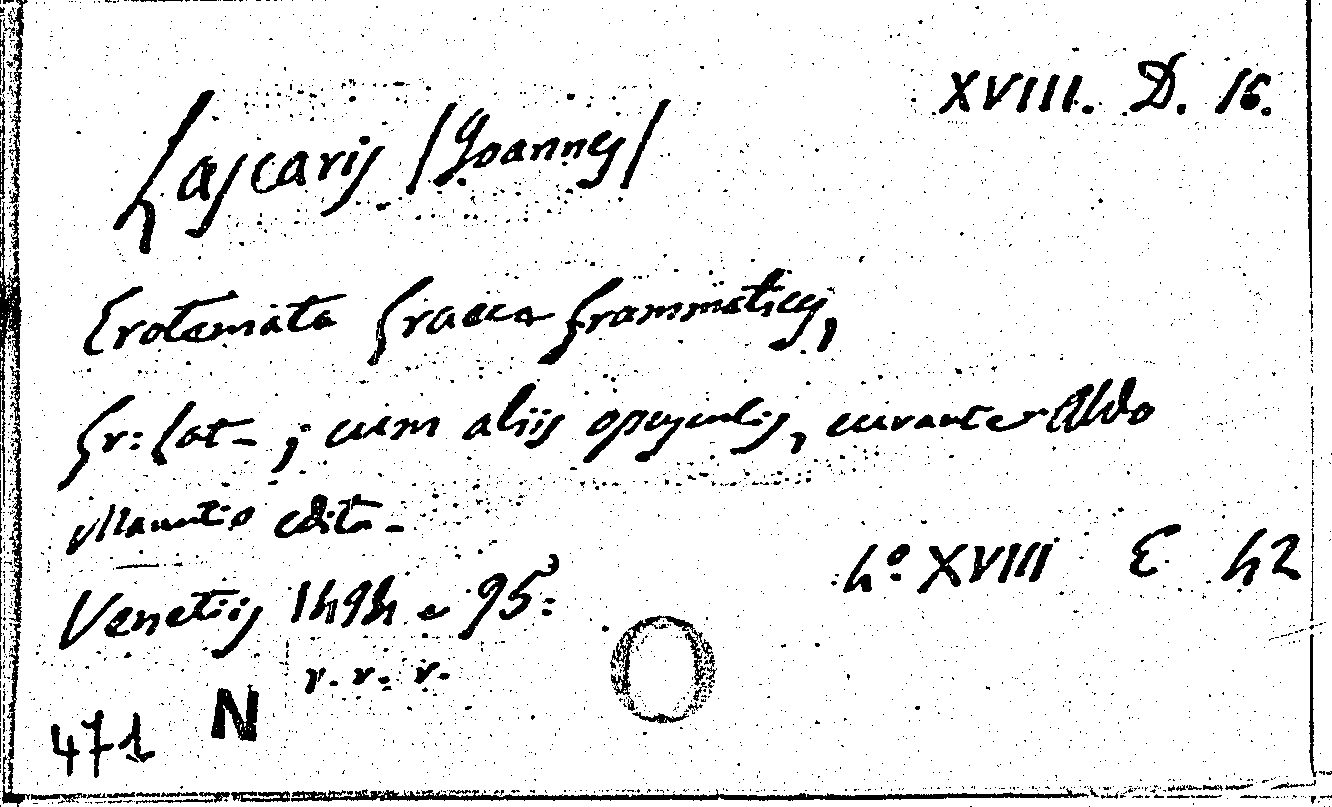 XVIII. D. 16.
Lascaris /Joannes/
Erotemata Graeca Grammatices,
Gr: Lat- ; cum aliis opusculis, curante Aldo
Manutio edita-
Venetiis 1494 e 95:
4º XVIII E 42
r. r. r.
471 N